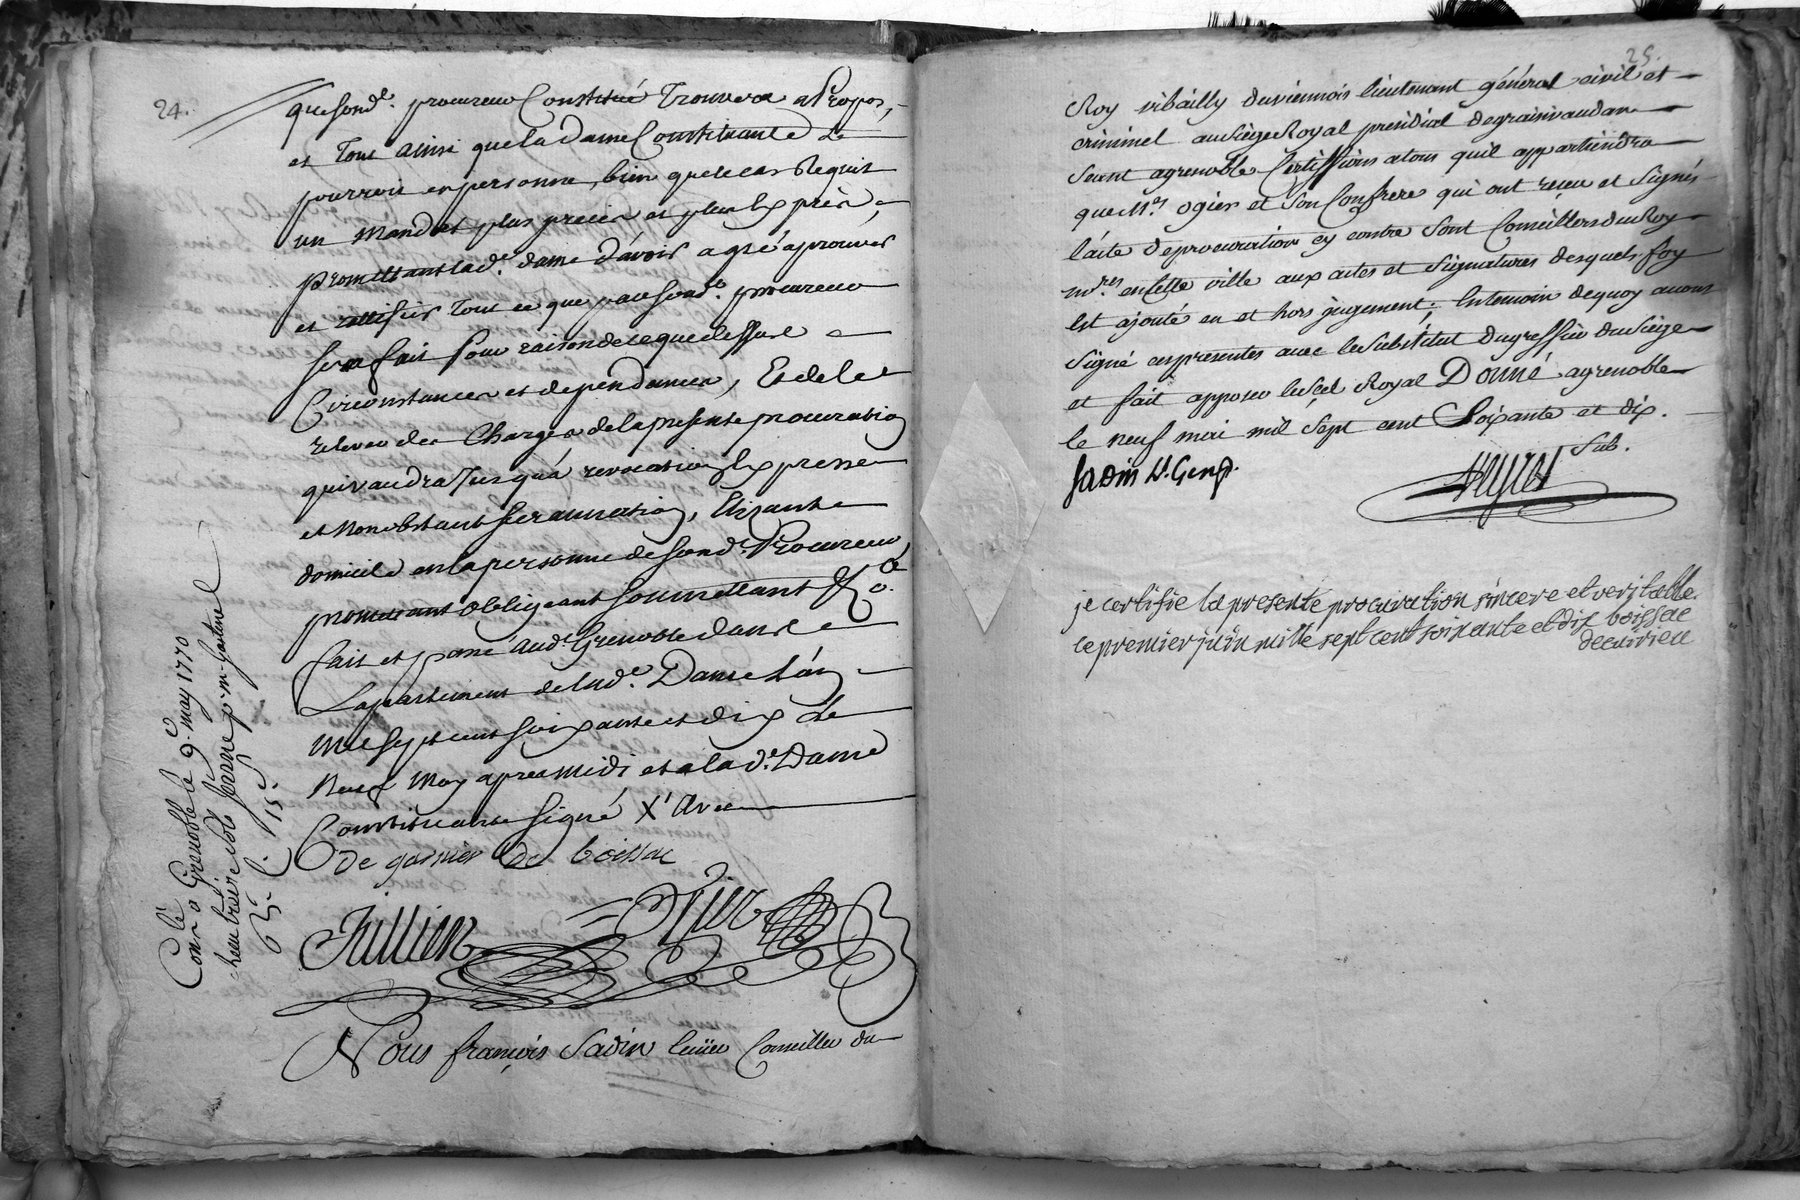 24.
que sond.t procureur Constitué Trouvera a Propos,
et Tout ainsi que la dame Constituante le
pourroit en personne, bien que le cas Requit
un Mandat plus precis et plus Exprès,
promettant lad.e dame d'avoir agréé aprouver
et rattifier Tout ce que par sond.t procureur
sera fait Pour raison de ce que dessus
Circonstances et dependances, Et de le
relever des Charges de la presente procuration
qui vaudra Jusqu'à revocation Expresse
et Nonobstant surannation, Elizant
domicile en la personne de sond.t Procureur,
promettant obligeant soumettant &c.a
fait et passé aud.t Grenoble dans
L'apartement de lad.e Dame L'an
Mil sept cent soixante et dix Le
Neuf May apres Midi et a lad.e Dame
Constituante signé X' Avec
De garnier De boissac
Jullien Ogier
Nous françois Sadin Ecuier Conseiller du
Con.lé a Grenoble le 9.e may 1770
6 s. 15 s.
25.
Roy vibailly du viennois lieutenant général civil et
criminel au siège Royal presidial de graisivaudan
Seant a grenoble Certiffions a tous qu'il appartiendra
que M.es ogier et Son Confrere qui ont reçeu et Signés
l'acte de procuration cy contre Sont Conseillers du Roy
n.res en Cette ville aux actes et Signatures desquels foy
Est ajouté en et hors jugement; En temoin de quoy avons
Signé ces presentes avec le Substitut du greffier du Siège
et fait apposer le Scel Royal Donné a grenoble
le neuf mai mil Sept cent Soixante et dix.
Sadin L.t Gen.l
Sub.
je certifie la presente procuration sincere et veritable
ce premier juin mille sept cent soixante et dix boissac
de cuirieu